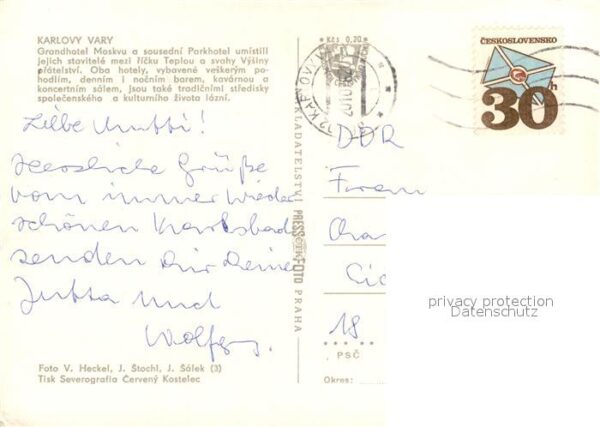 KARLOVY VARY
Grandhotel Moskva a sousední Parkhotel umístili
jejich stavitelé mezi říčku Teplou a svahy Výšiny
přátelství. Oba hotely, vybavené veškerým po-
hodlím, denním i nočním barem, kavárnou a
koncertním sálem, jsou také tradičními středisky
společenského a kulturního života lázní.
Liebe Mutti!
Herzliche Grüße
vom immer wieder
schönen Karlsbad
senden Dir Deine
Jutta und
Wolfgang.
Foto V. Heckel, J. Štochl, J. Šálek (3)
Tisk Severografia Červený Kostelec
NAKLADATELSTVÍ PRESSFOTO PRAHA
Kčs 0,20
KARLOVY
ČESKOSLOVENSKO
30h
DDR
Fram
18
PSČ
Okres:
privacy protection
Datenschutz